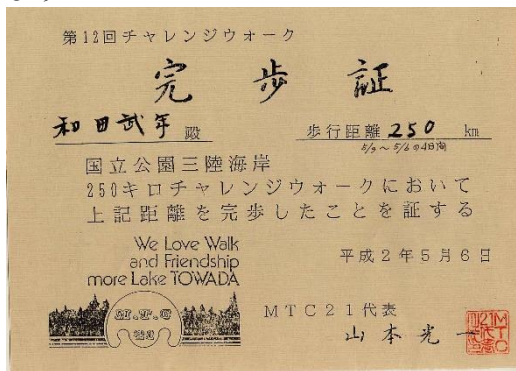 第12回チャレンジウォーク
完歩証
和田武年 殿
歩行距離 250 km
5/3～5/6の4日間
国立公園三陸海岸
250キロチャレンジウォークにおいて
上記距離を完歩したことを証する
We Love Walk
and Friendship
more Lake TOWADA
平成2年5月6日
M.T.C
MTC21代表
山本光一